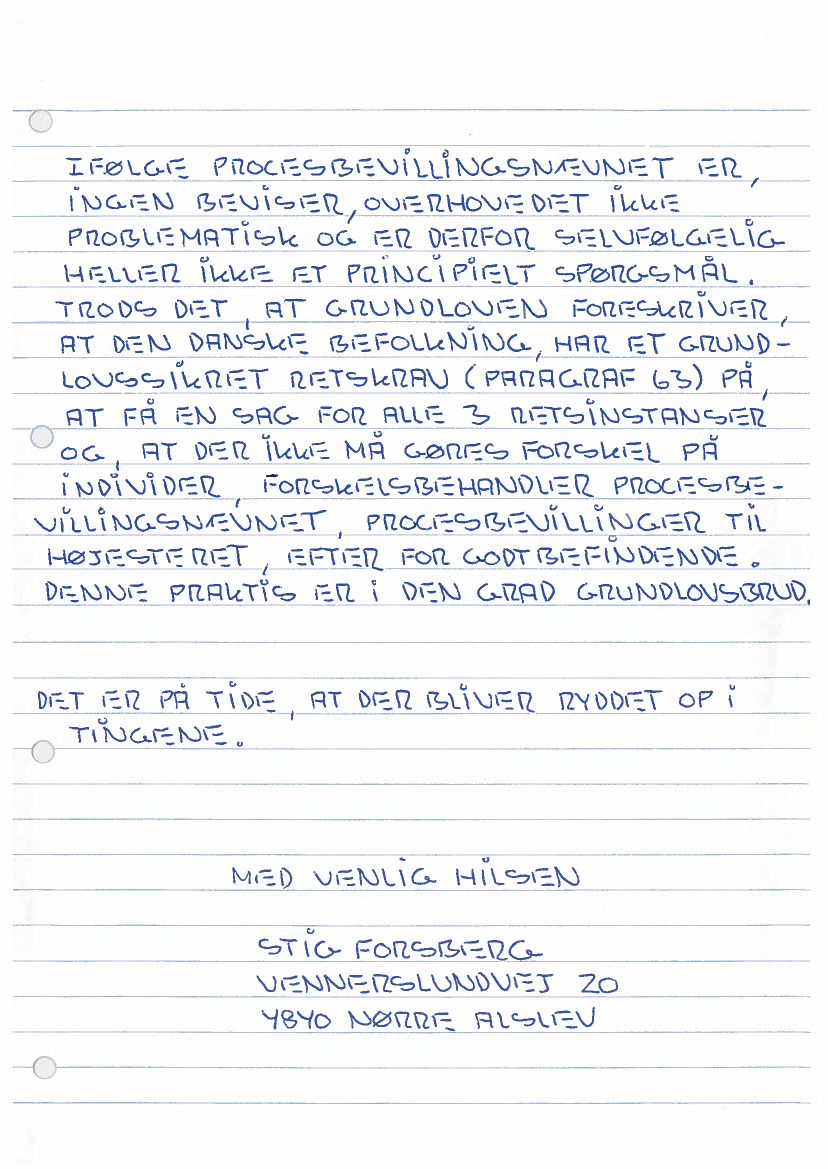 IFØLGE PROCESBEVILLINGSNÆVNET ER,
INGEN BEVISER, OVERHOVEDET IKKE
PROBLEMATISK OG ER DERFOR SELVFØLGELIG
HELLER IKKE ET PRINCIPIELT SPØRGSMÅL.
TRODS DET, AT GRUNDLOVEN FORESKRIVER,
AT DEN DANSKE BEFOLKNING, HAR ET GRUND-
LOVSSIKRET RETSKRAV (PARAGRAF 63) PÅ,
AT FÅ EN SAG FOR ALLE 3 RETSINSTANSER
OG, AT DER IKKE MÅ GØRES FORSKEL PÅ
INDIVIDER, FORSKELSBEHANDLER PROCESBE-
VILLINGSNÆVNET, PROCESBEVILLINGER TIL
HØJESTERET, EFTER FOR GODTBEFINDENDE.
DENNE PRAKTIS ER I DEN GRAD GRUNDLOVSBRUD.
DET ER PÅ TIDE, AT DER BLIVER RYDDET OP I
TINGENE.
MED VENLIG HILSEN
STIG FORSBERG
VENNERSLUNDVEJ 20
4840 NØRRE ALSLEV